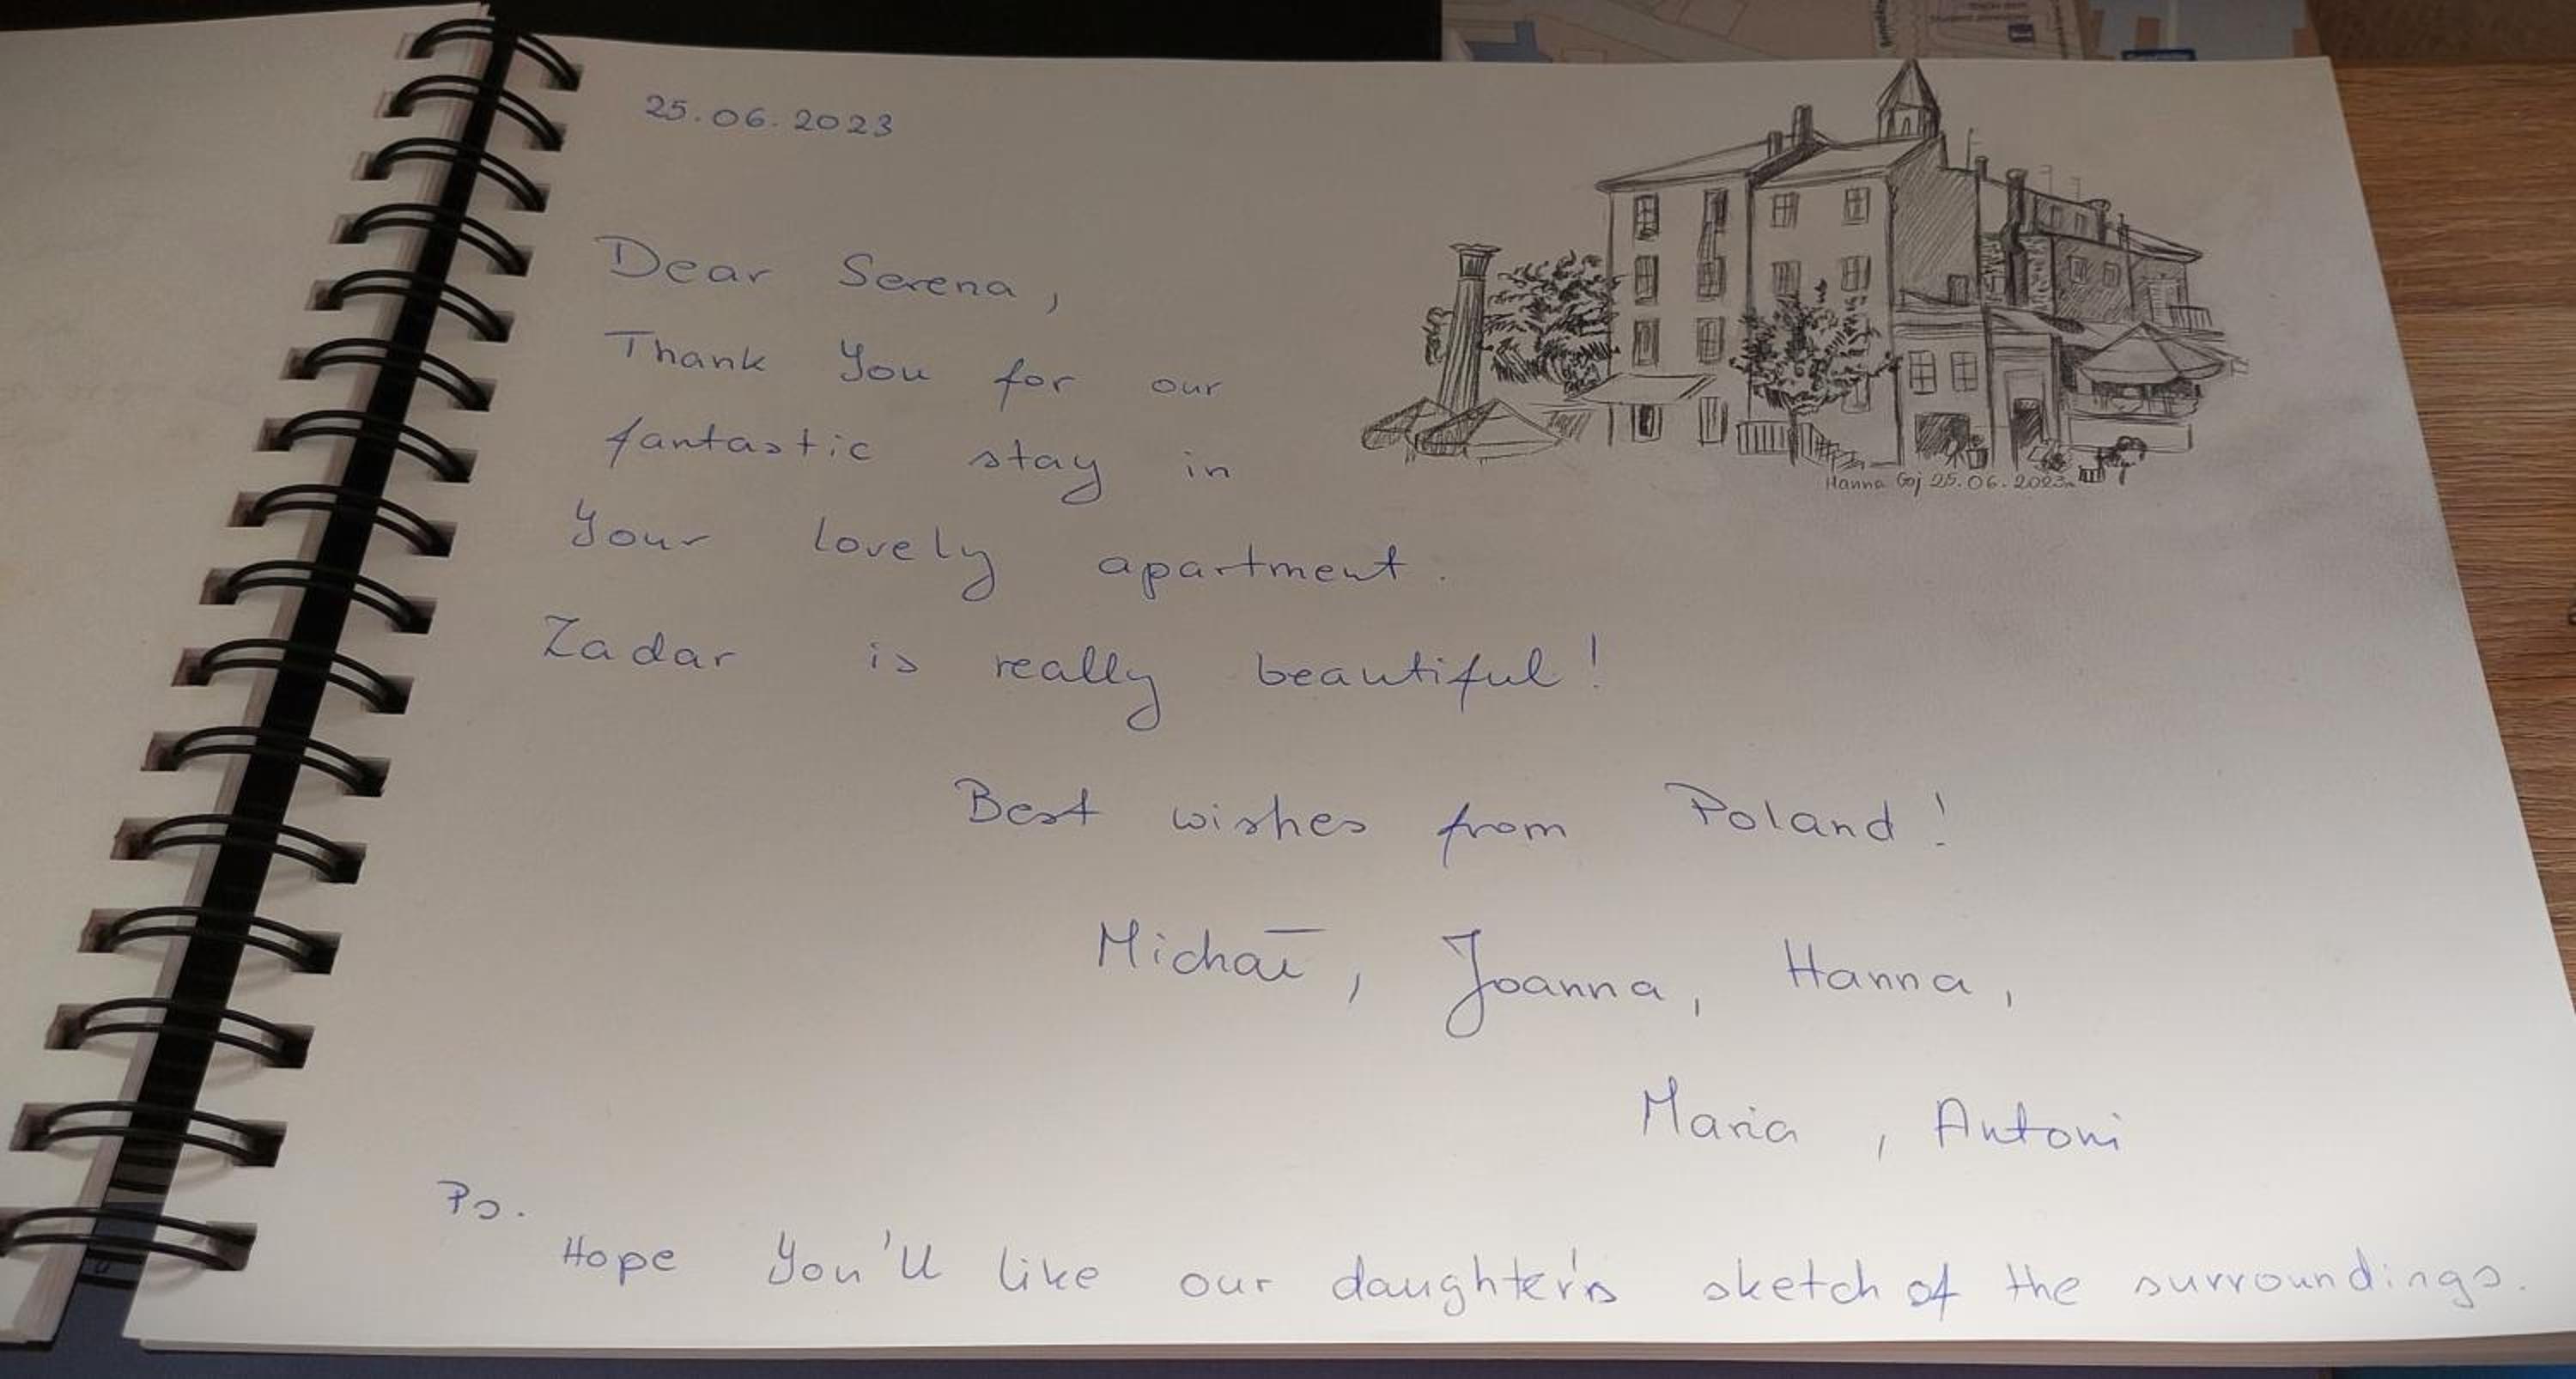 25.06.2023
Dear Serena,
Thank You for our
fantastic stay in
Your lovely apartment.
Zadar is really beautiful!
Hanna Goj 25.06.2023
Best wishes from Poland!
Michał, Joanna, Hanna,
Maria, Antoni
Ps.
Hope You'll like our daughter's sketch of the surroundings.